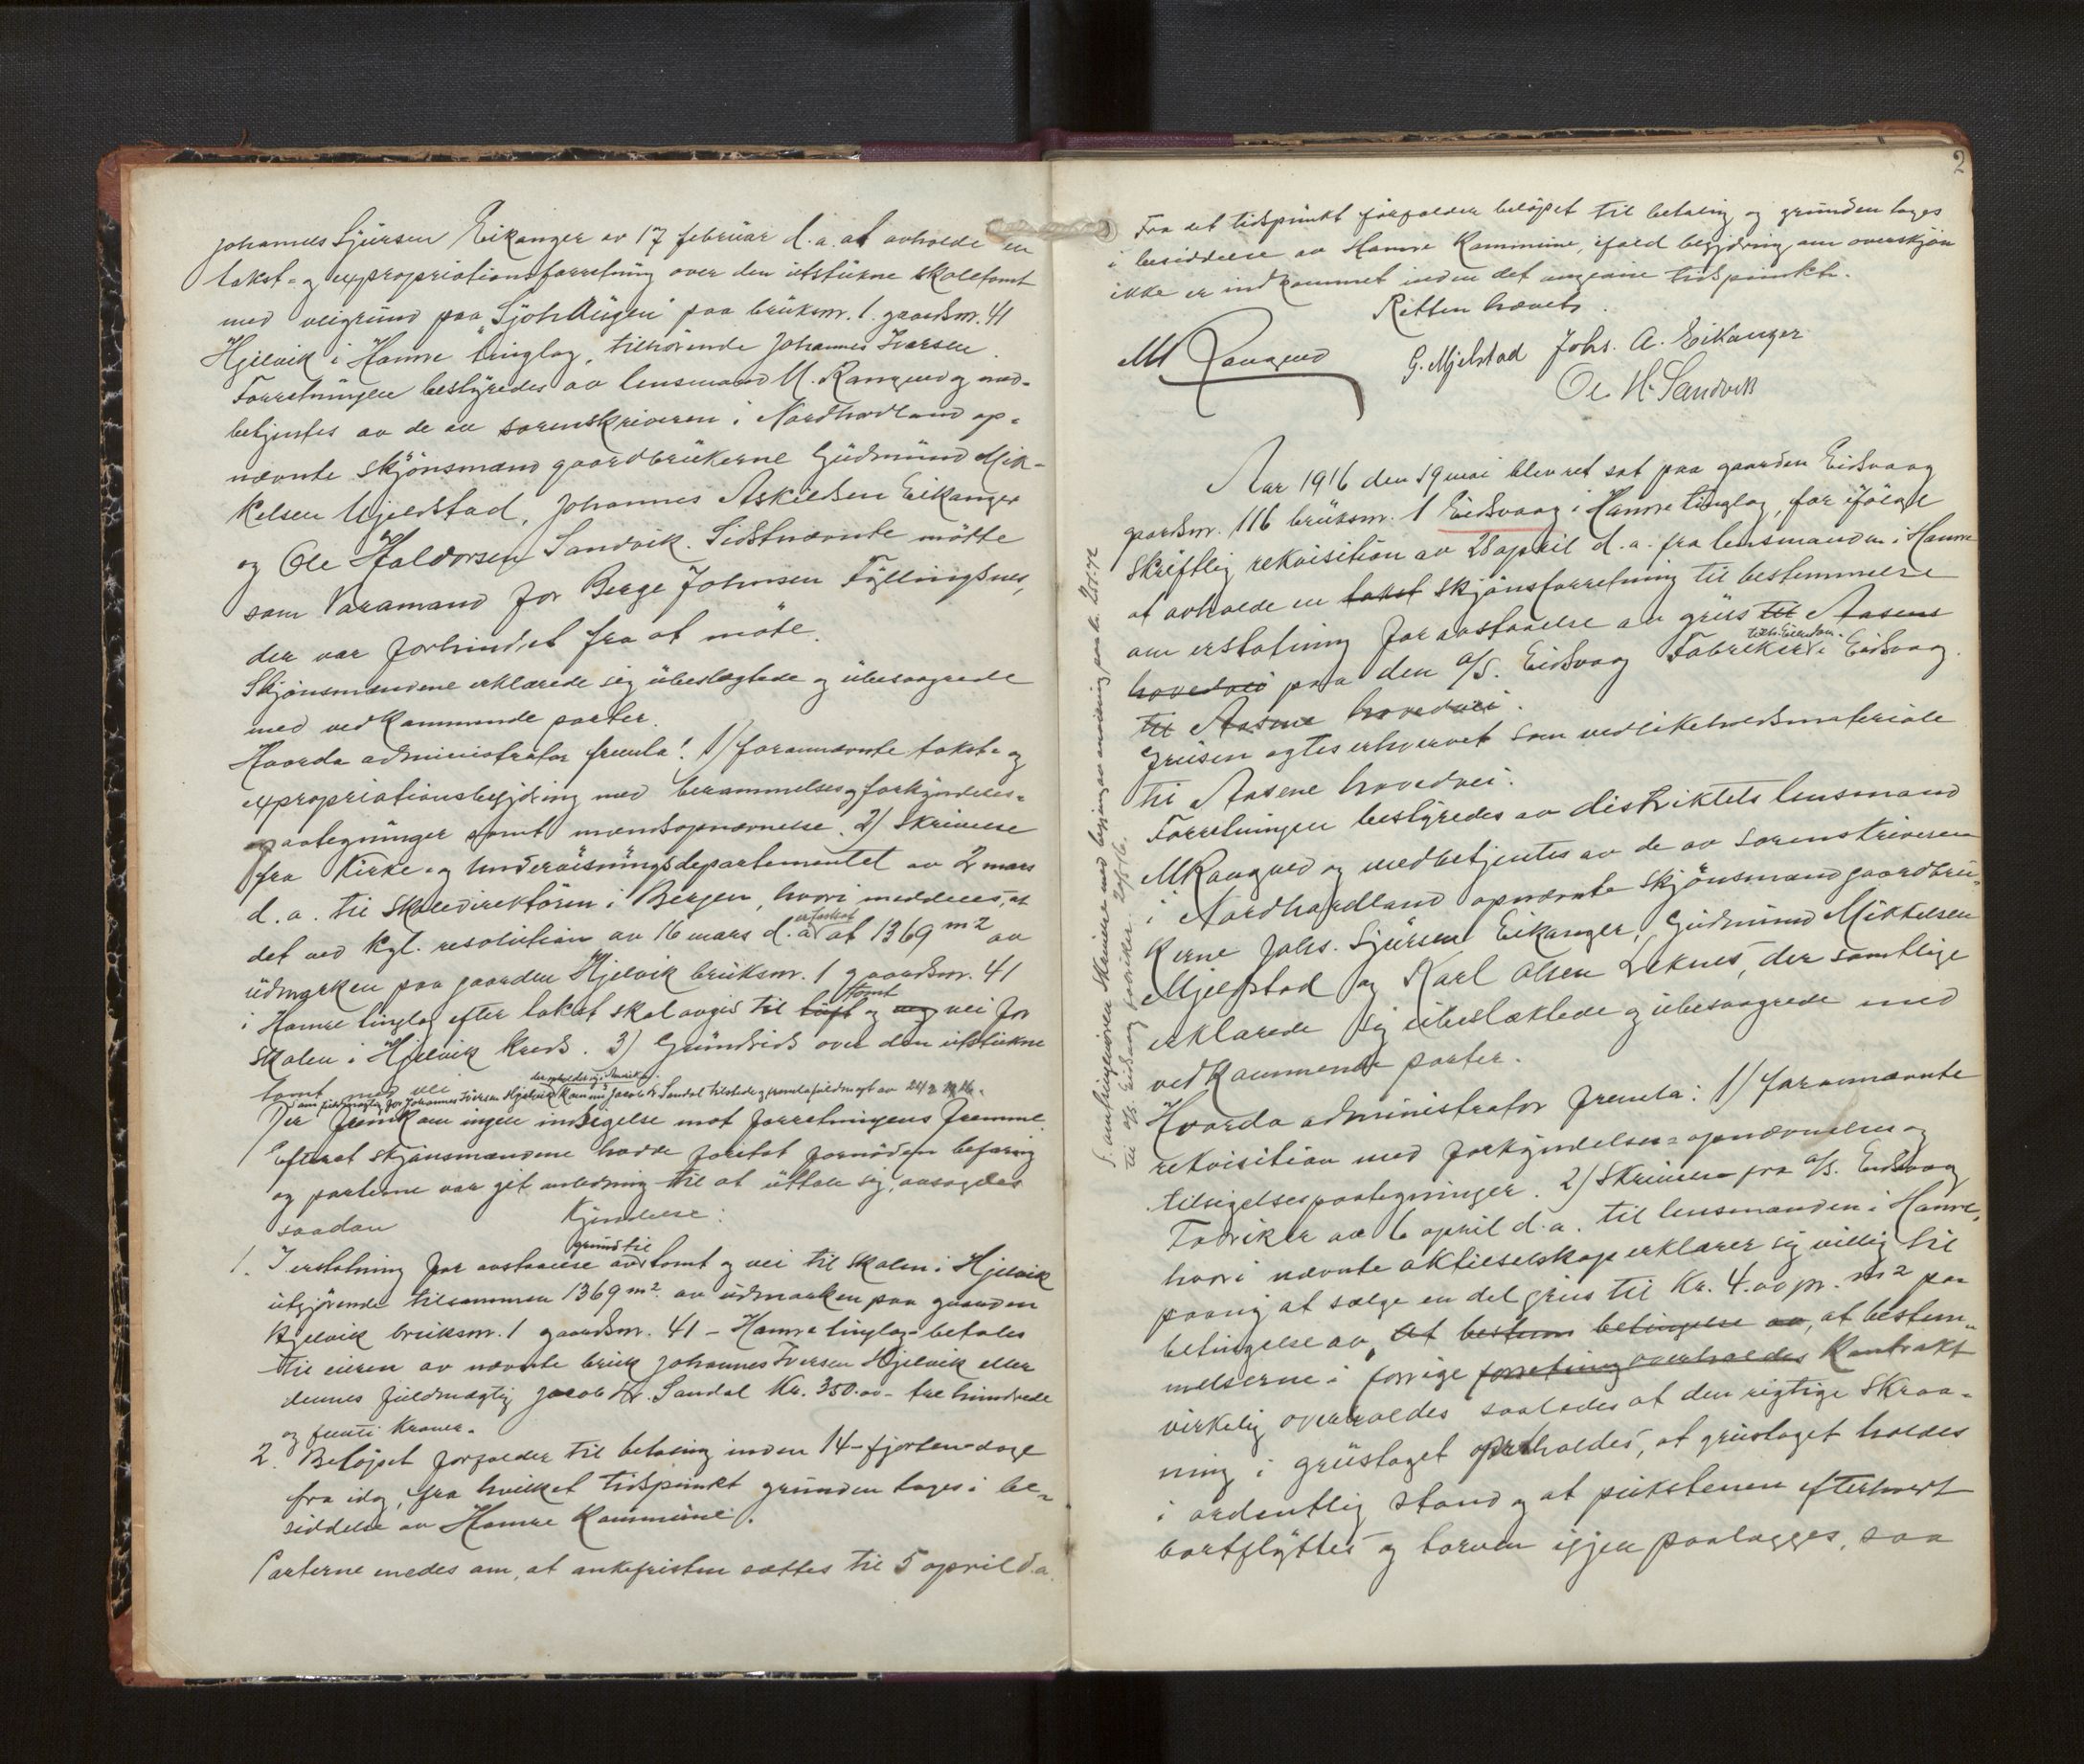 Johannes Sjursen Eikanger av 17 februar d.a. at avholde en
takst- og expropriationsforretning over den utstukne skoletomt
med veigrund paa "Sjöhaugen" paa bruksnr. 1. gaardsnr. 41
Hjelvik i Hamre tinglag, tilhörende Johannes Iversen.
Forretningen bestyredes av lensmand M. Rangved og med-
betjentes av de av sorenskriveren i Nordhordland op-
nævnte skjönsmænd gaardbrukerne Gudmund Mik-
kelsen Mjelstad, Johannes Askildsen Eikanger
og Ole Haldorsen Sandvik. Sidstnævnte mötte
som Varamand for Berge Johnsen Fyllingsnes,
der var forhindret fra at möte.
Skjönsmændene erklærede sig ubeslægtede og ubesvogrede
med vedkommende parter.
Hvorda administrator fremla: 1) forannævnte takst- og
expropriationsbegjæring med berammelses og forkyndelses-
paategninger samt mændsopnævnelse. 2) Skrivelse
fra Kirke- og Undervisningsdepartementet av 2 mars
d.a. til Skoledirektören i Bergen, hvori meddeles, at
det ved Kgl. resolution av 16 mars d.a. at 1369 m2 av
udmarken paa gaarden Hjelvik bruksnr. 1 gaardsnr. 41
i Hamre tinglag efter takst skal avgis til tomt og vei for
skolen i Hjelvik kreds. 3) Grundrids over den utstukne
tomt med vei
Som fuldmægtig for Johannes Iversen Hjelvik der opholder sig i Amerika Jacob Kr. Sandal tilstede og fremla fuldmagt av
Der fremkom ingen indsigelse mot forretningens fremme.
Efterat skjönsmændene havde foretat fornöden befaring
og parterne var git anledning til at uttale sig, avsagdes
saadan Kjendelse:
1. I erstatning for avstaaelse av grund til tomt og vei til skolen i Hjelvik
utgjörende tilsammen 1369 m2 av udmarken paa gaarden
Hjelvik bruksnr. 1 gaardsnr. 41 - Hamre tinglag - betales
til eieren av nævnte bruk Johannes Iversen Hjelvik eller
dennes fuldmægtig Jacob Kr. Sandal Kr. 350.00 - tre hundrede
og femti Kroner.
2. Belöpet forfalder til betaling inden 14 - fjorten - dage
fra idag, fra hvilket tidspunkt grunden tages i be-
siddelse av Hamre Kommune.
Parterne enedes om, at ankefristen sættes til 5 april d.a.
2
Fra det tidspunkt forfalder belöpet til betaling og grunden tages
i besiddelse av Hamre Kommune, ifald begjæring om overskjön
ikke er indkommet inden det angivne tidspunkt.
Retten hævet.
M Rangved G. Mjelstad Johs. A. Eikanger
Ole H. Sandvik
Aar 1916 den 19 mai blev ret sat paa gaarden Eidsvaag
gardsnr. 116 bruksnr. 1 Eidsvaag i Hamre tinglag, for ifölge
skriftlig rekvisition av 28 april d.a. fra lensmanden i Hamre
at avholde en takst skjönsforretning til bestemmelse
om erstatning for avstaaelse av grus til Aasene
hovedvei paa den a/s. Eidsvaag Fabriker tilh. Eiendom i Eidsvaag.
til Aasene hovedvei.
Grusen agtes erhvervet som vedlikeholdsmateriale
til Aasene hovedvei.
Forretningen bestyredes av distriktets lensmand
M Rangved og medbetjentes av de av sorenskriveren
i Nordhordland opnævnte skjönsmænd gaardbru-
kerne Johs. Sjursen Eikanger, Gudmund Mikkelsen
Mjelstad og Karl Olsen Leknes, der samtlige
erklærede sig ubeslæktede og ubesvogrede med
vedkommende parter.
Hvorda administrator fremla: 1) forannævnte
rekvisition med forkyndelses- opnævnelses og
tilsigelsespaategninger. 2) Skrivelse fra a/s. Eidsvaag
Fabriker av 6 april d.a. til lensmanden i Hamre,
hvori nævnte aktieselskap erklærer sig villig til
paany at sælge en del grus til Kr. 4.00 pr. m2 paa
betingelse av, at bestem betingelse av, at bestem-
melserne i forrige forretning overholdes Kontrakt
virkelig overholdes saaledes at den rigtige skraa-
ning i grustaget opretholdes, at grustaget holdes
i ordentlig stand og at pukstenen efterhvert
bortflyttes og torven igjen paalægges, saa
til a/s. Eidsvaag fabriker. 20/5 16.